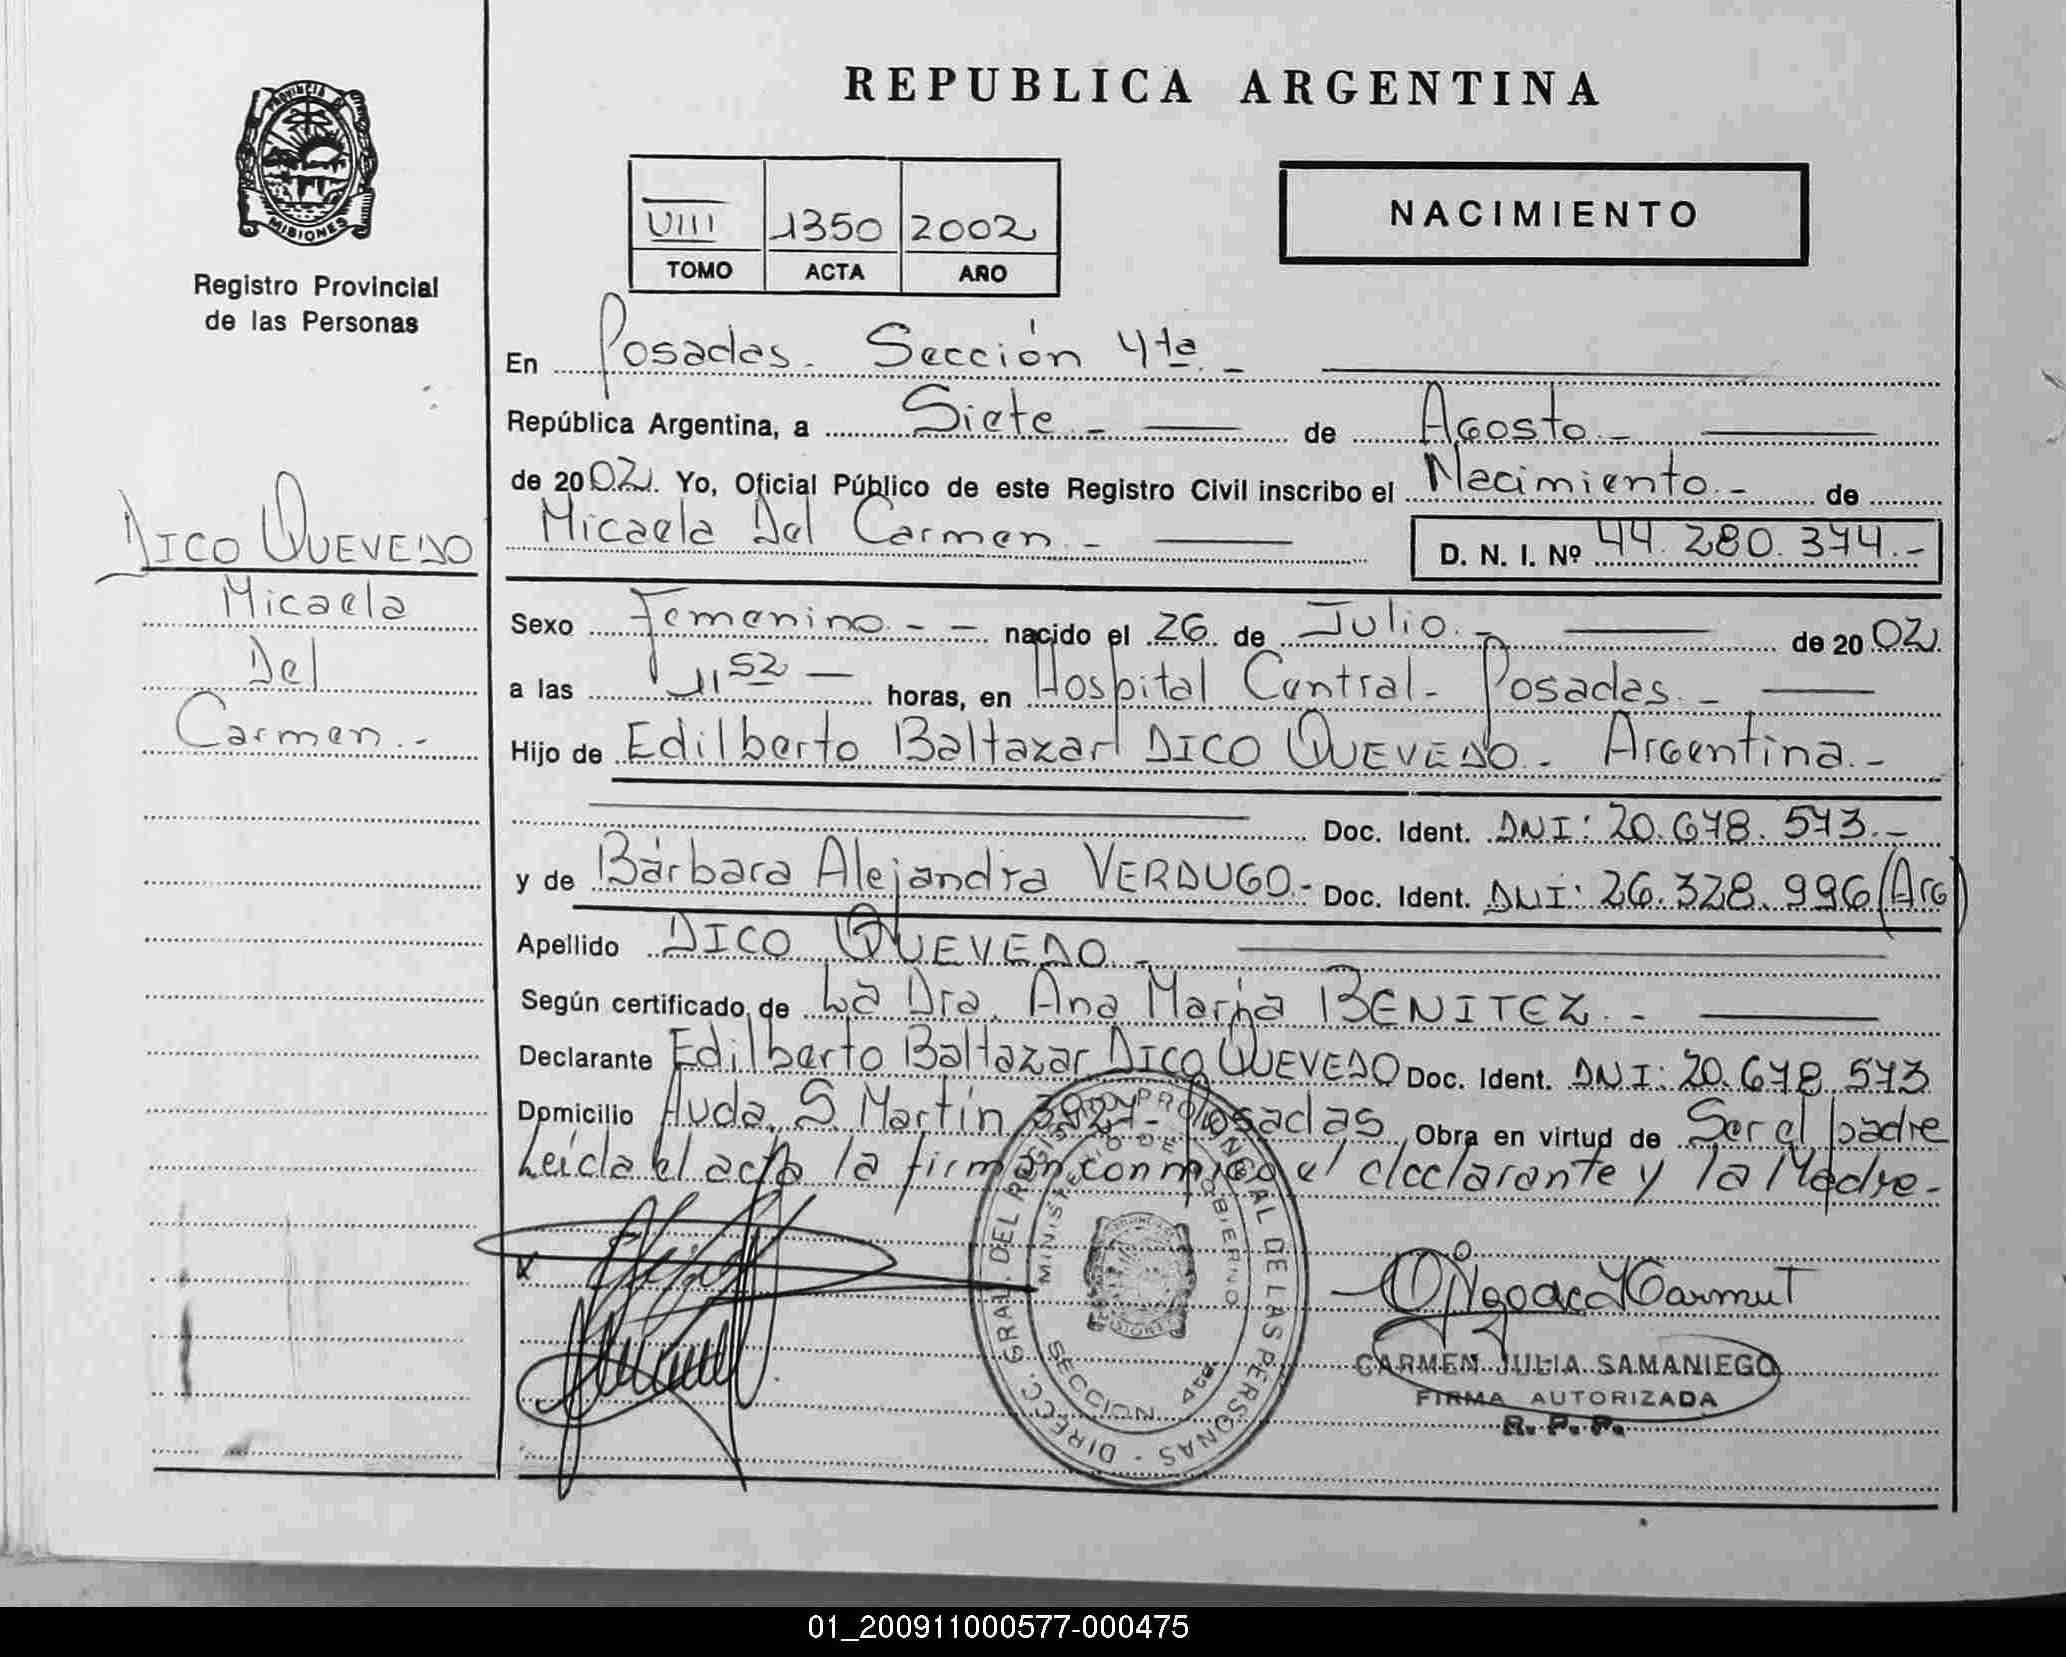 REPUBLICA ARGENTINA
PROVINCIA DE
MISIONES
Registro Provincial
de las Personas
VIII 1350 2002
TOMO ACTA AÑO
NACIMIENTO
En Posadas. Sección 4ta. -
República Argentina, a Siete. - de Agosto. -
de 2002. Yo, Oficial Público de este Registro Civil inscribo el Nacimiento. - de
Micaela Del Carmen. - D. N. I. Nº 44.280.374.-
DICO QUEVEDO
Micaela
Del
Carmen.-
Sexo Femenino. - - nacido el 26 de Julio. - de 2002.
a las 11 52 — horas, en Hospital Central - Posadas. -
Hijo de Edilberto Baltazar DICO QUEVEDO - Argentina.-
Doc. Ident. DNI: 20.678.573.-
y de Bárbara Alejandra VERDUGO.- Doc. Ident. DNI: 26.328.996 (Arg)
Apellido DICO QUEVEDO. -
Según certificado de La Dra. Ana María BENITEZ. -
Declarante Edilberto Baltazar DICO QUEVEDO Doc. Ident. DNI: 20.678.573
Domicilio Avda. S. Martín 3827 - Posadas Obra en virtud de Ser el padre
Leída el acta la firman conmigo el declarante y la Madre.-
DIRECC. GRAL. DEL REGISTRO PROVINCIAL DE LAS PERSONAS -
MINISTERIO DE GOBIERNO
SECCION 4ta
CARMEN JULIA SAMANIEGO
FIRMA AUTORIZADA
R. P. P.
01_200911000577-000475